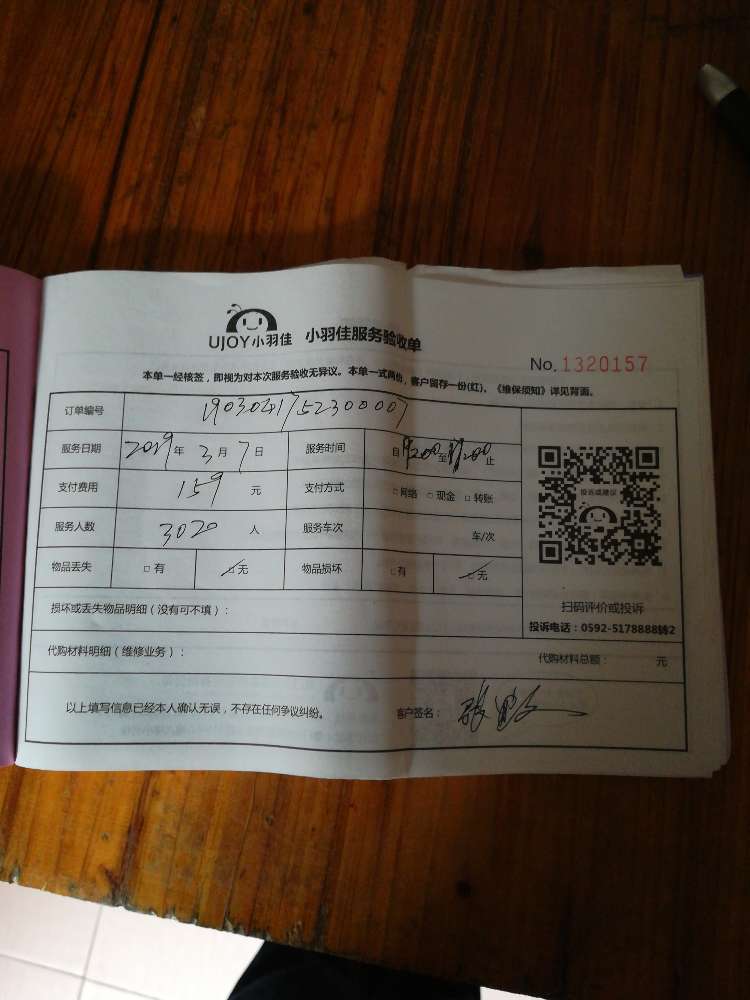 UJOY小羽佳 小羽佳服务验收单
No. 1320157
本单一经核签，即视为对本次服务验收无异议。本单一式两份，客户留存一份(红)、《维保须知》详见背面。
订单编号 1903041752300007
服务日期 2019年 3月 7日 服务时间 自 至 止
支付费用 159 元 支付方式 □网络 □现金 □转账
服务人数 3020 人 服务车次 车/次
物品丢失 □有 □无 物品损坏 □有 □无
投诉或建议
扫码评价或投诉
投诉电话：0592-5178888转2
损坏或丢失物品明细（没有可不填）：
代购材料明细（维修业务）： 代购材料总额： 元
以上填写信息已经本人确认无误，不存在任何争议纠纷。 客户签名：